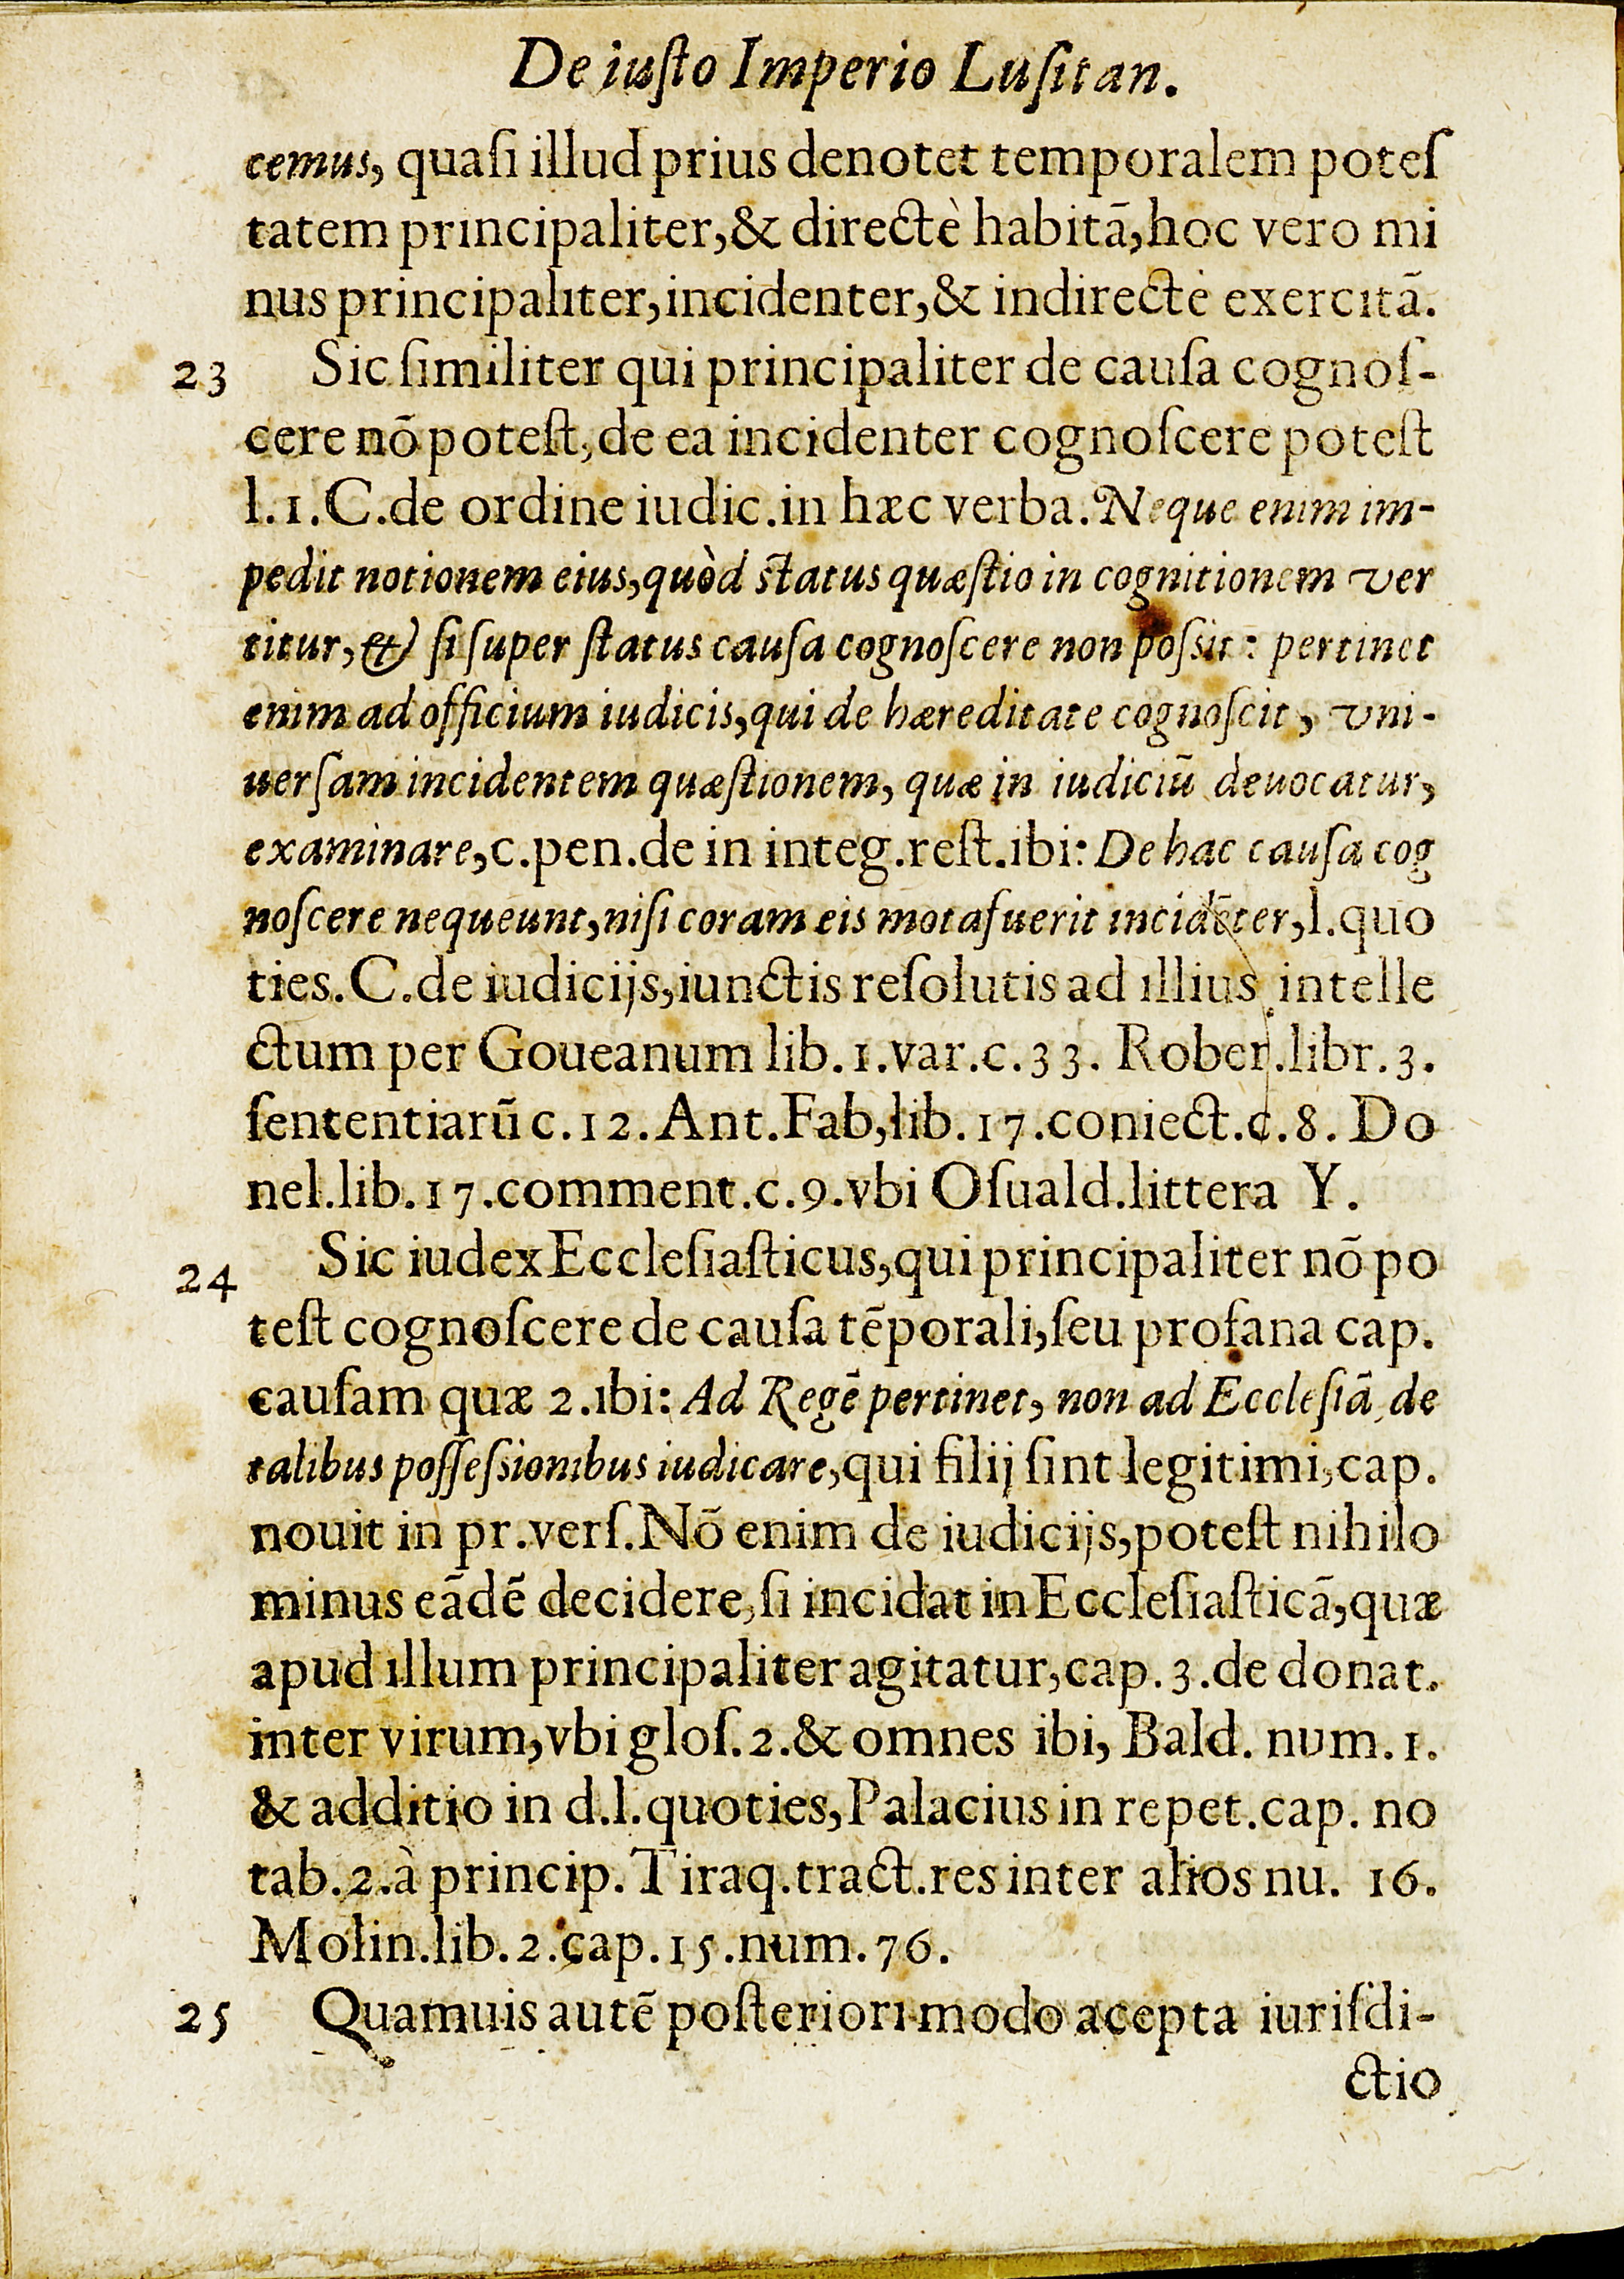 De iuſto Imperio Luſitan.
cemus, quaſi illud prius denotet temporalem poteſ
tatem principaliter,& directè habitã,hoc vero mi
nus principaliter,incidenter,& indirectè exercitã.
23 Sic ſimiliter qui principaliter de cauſa cognoſ-
cere nõ poteſt,de ea incidenter cognoſcere poteſt
l.1.C.de ordine iudic.in hæc verba.Neque enim im-
pedit notionem eius,quòd ſtatus quæſtio in cognitionem ver
titur,& ſi ſuper ſtatus cauſa cognoſcere non poſsit: pertinet
enim ad officium iudicis,qui de hæreditate cognoſcit, vni-
uerſam incidentem quæſtionem, quæ in iudiciũ deuocatur,
examinare,c.pen.de in integ.reſt.ibi: De hac cauſa cog
noſcere nequeunt,niſi coram eis mota fuerit incidẽter,l.quo
ties.C.de iudicijs,iunctis reſolutis ad illius intelle
ctum per Goueanum lib.1.var.c.33. Rober.libr.3.
ſententiarũ c.12.Ant.Fab,lib.17.coniect.c.8. Do
nel.lib.17.comment.c.9.vbi Oſuald.littera Y.
24 Sic iudex Eccleſiaſticus,qui principaliter nõ po
teſt cognoſcere de cauſa tẽporali,ſeu profana cap.
cauſam quæ 2.ibi: Ad Regẽ pertinet, non ad Eccleſiã de
talibus poſſeſsionibus iudicare,qui filij ſint legitimi,cap.
nouit in pr.verſ.Nõ enim de iudicijs,poteſt nihilo
minus eãdẽ decidere,ſi incidat in Eccleſiaſticã,quæ
apud illum principaliter agitatur,cap.3.de donat.
inter virum,vbi gloſ.2.& omnes ibi, Bald. num.1.
& additio in d.l.quoties,Palacius in repet.cap. no
tab.2.à princip.Tiraq.tract.res inter alios nu. 16.
Molin.lib.2.cap.15.num.76.
25 Quamuis autẽ poſteriori modo acepta iuriſdi-
ctio